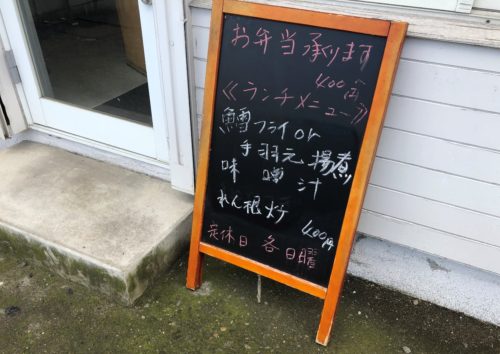 お弁当承ります
400円〜
《ランチメニュー》
鱈フライor
手羽元揚煮
味噌汁
れん根炒
400円
定休日 各日曜